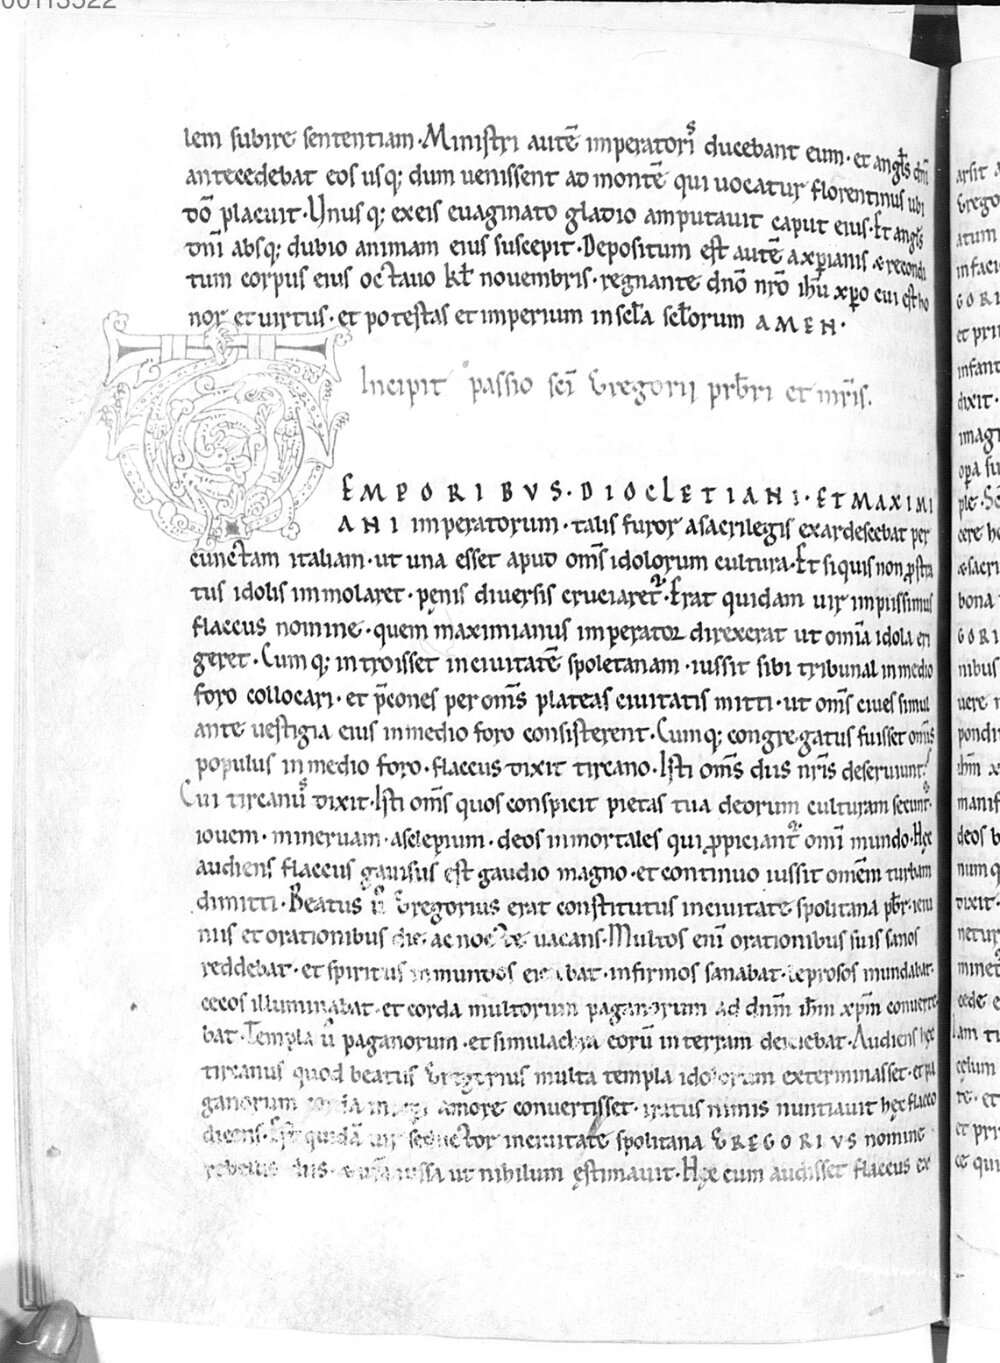 00113522
lem subire sententiam · Ministri autē imperatoris ducebant eum · et angls dn̄i
antecedebat eos usq; dum uenissent ad montē qui uocatur florentinus ubi
dō placuit · Unus q; exeis euaginato gladio amputauit caput eius · Et angls
dn̄i absq; dubio animam eius suscepit · Depositum est autē axpianis & recondi
tum corpus eius octauo kł nouembris · regnante dn̄o nr̄o ihū xp̄o cui est ho
nor et uirtus · et potestas et imperium in scła scłorum AMEN ·
Incipit passio scī Gregorii prb̄ri et mr̄is.
TEMPORIBVS · DIOCLETIANI · ET MAXIMI
ANI imperatorum · talis furor asacrilegis exardescebat per
cunctam italiam · ut una esset apud oms̄ idolorum cultura · Et siquis non ꝓstra
tus idolis immolaret · pęnis diuersis cruciaret᷑ · Erat quidam uir impiissimus
flaccus nomine · quem maximianus imperator direxerat ut omīa idola eri
geret · Cum q; introisset inciuitatē spoletanam · iussit sibi tribunal inmedio
foro collocari · et p̄cones per oms̄ plateas ciuitatis mitti · ut oms̄ ciues simul
ante uestigia eius inmedio foro consisterent · Cum q; congregatus fuisset omīs
populus inmedio foro · flaccus dixit tircano · Isti oms̄ diis nr̄is deseruiunt?
Cui tircanus dixit · Isti oms̄ quos conspicit pietas tua deorum culturam secunt᷑ ·
iouem · mineruam · asclepium · deos inmortales qui ꝓpiciant᷑ omī mundo · Hęc
audiens flaccus gauisus est gaudio magno · et continuo iussit omēm turbam
dimitti · Beatus ū Gregorius erat constitutus inciuitate spolitana pbr̄ · ieiu
niis et orationibus die ac nocte uacans · Multos enī orationibus suis sanos
reddebat · et spiritus inmundos eiciebat · infirmos sanabat · leprosos mundabat ·
cęcos illuminabat · et corda multorum paganorum ad dnm̄ ihm̄ xpm̄ conuerte
bat · Templa ū paganorum · et simulachra eorū in terram deiciebat · Audiens hęc
tircanus quod beatus Gregorius multa templa idolorum exterminasset · et pa
ganorum corda in amore conuertisset · iratus nimis nuntiauit hęc flacco
dicens · Est quidā uir seductor inciuitate spolitana GREGORIVS nomine
rebellis diis · & iussa ut nihilum ęstimauit · Hęc cum audisset flaccus ex
arsit
Grego
atum
infaci
GORI
et pri
infant
dixit ·
imagi
opa su
ple · Sc̄
cere
&sacri
bona
GORI
nibus
uere
pondit
ihm̄
manif
deos b
num q
dixit ·
netur
minet
cede
lam ti
cęlum
re · et
et pri
ce qui